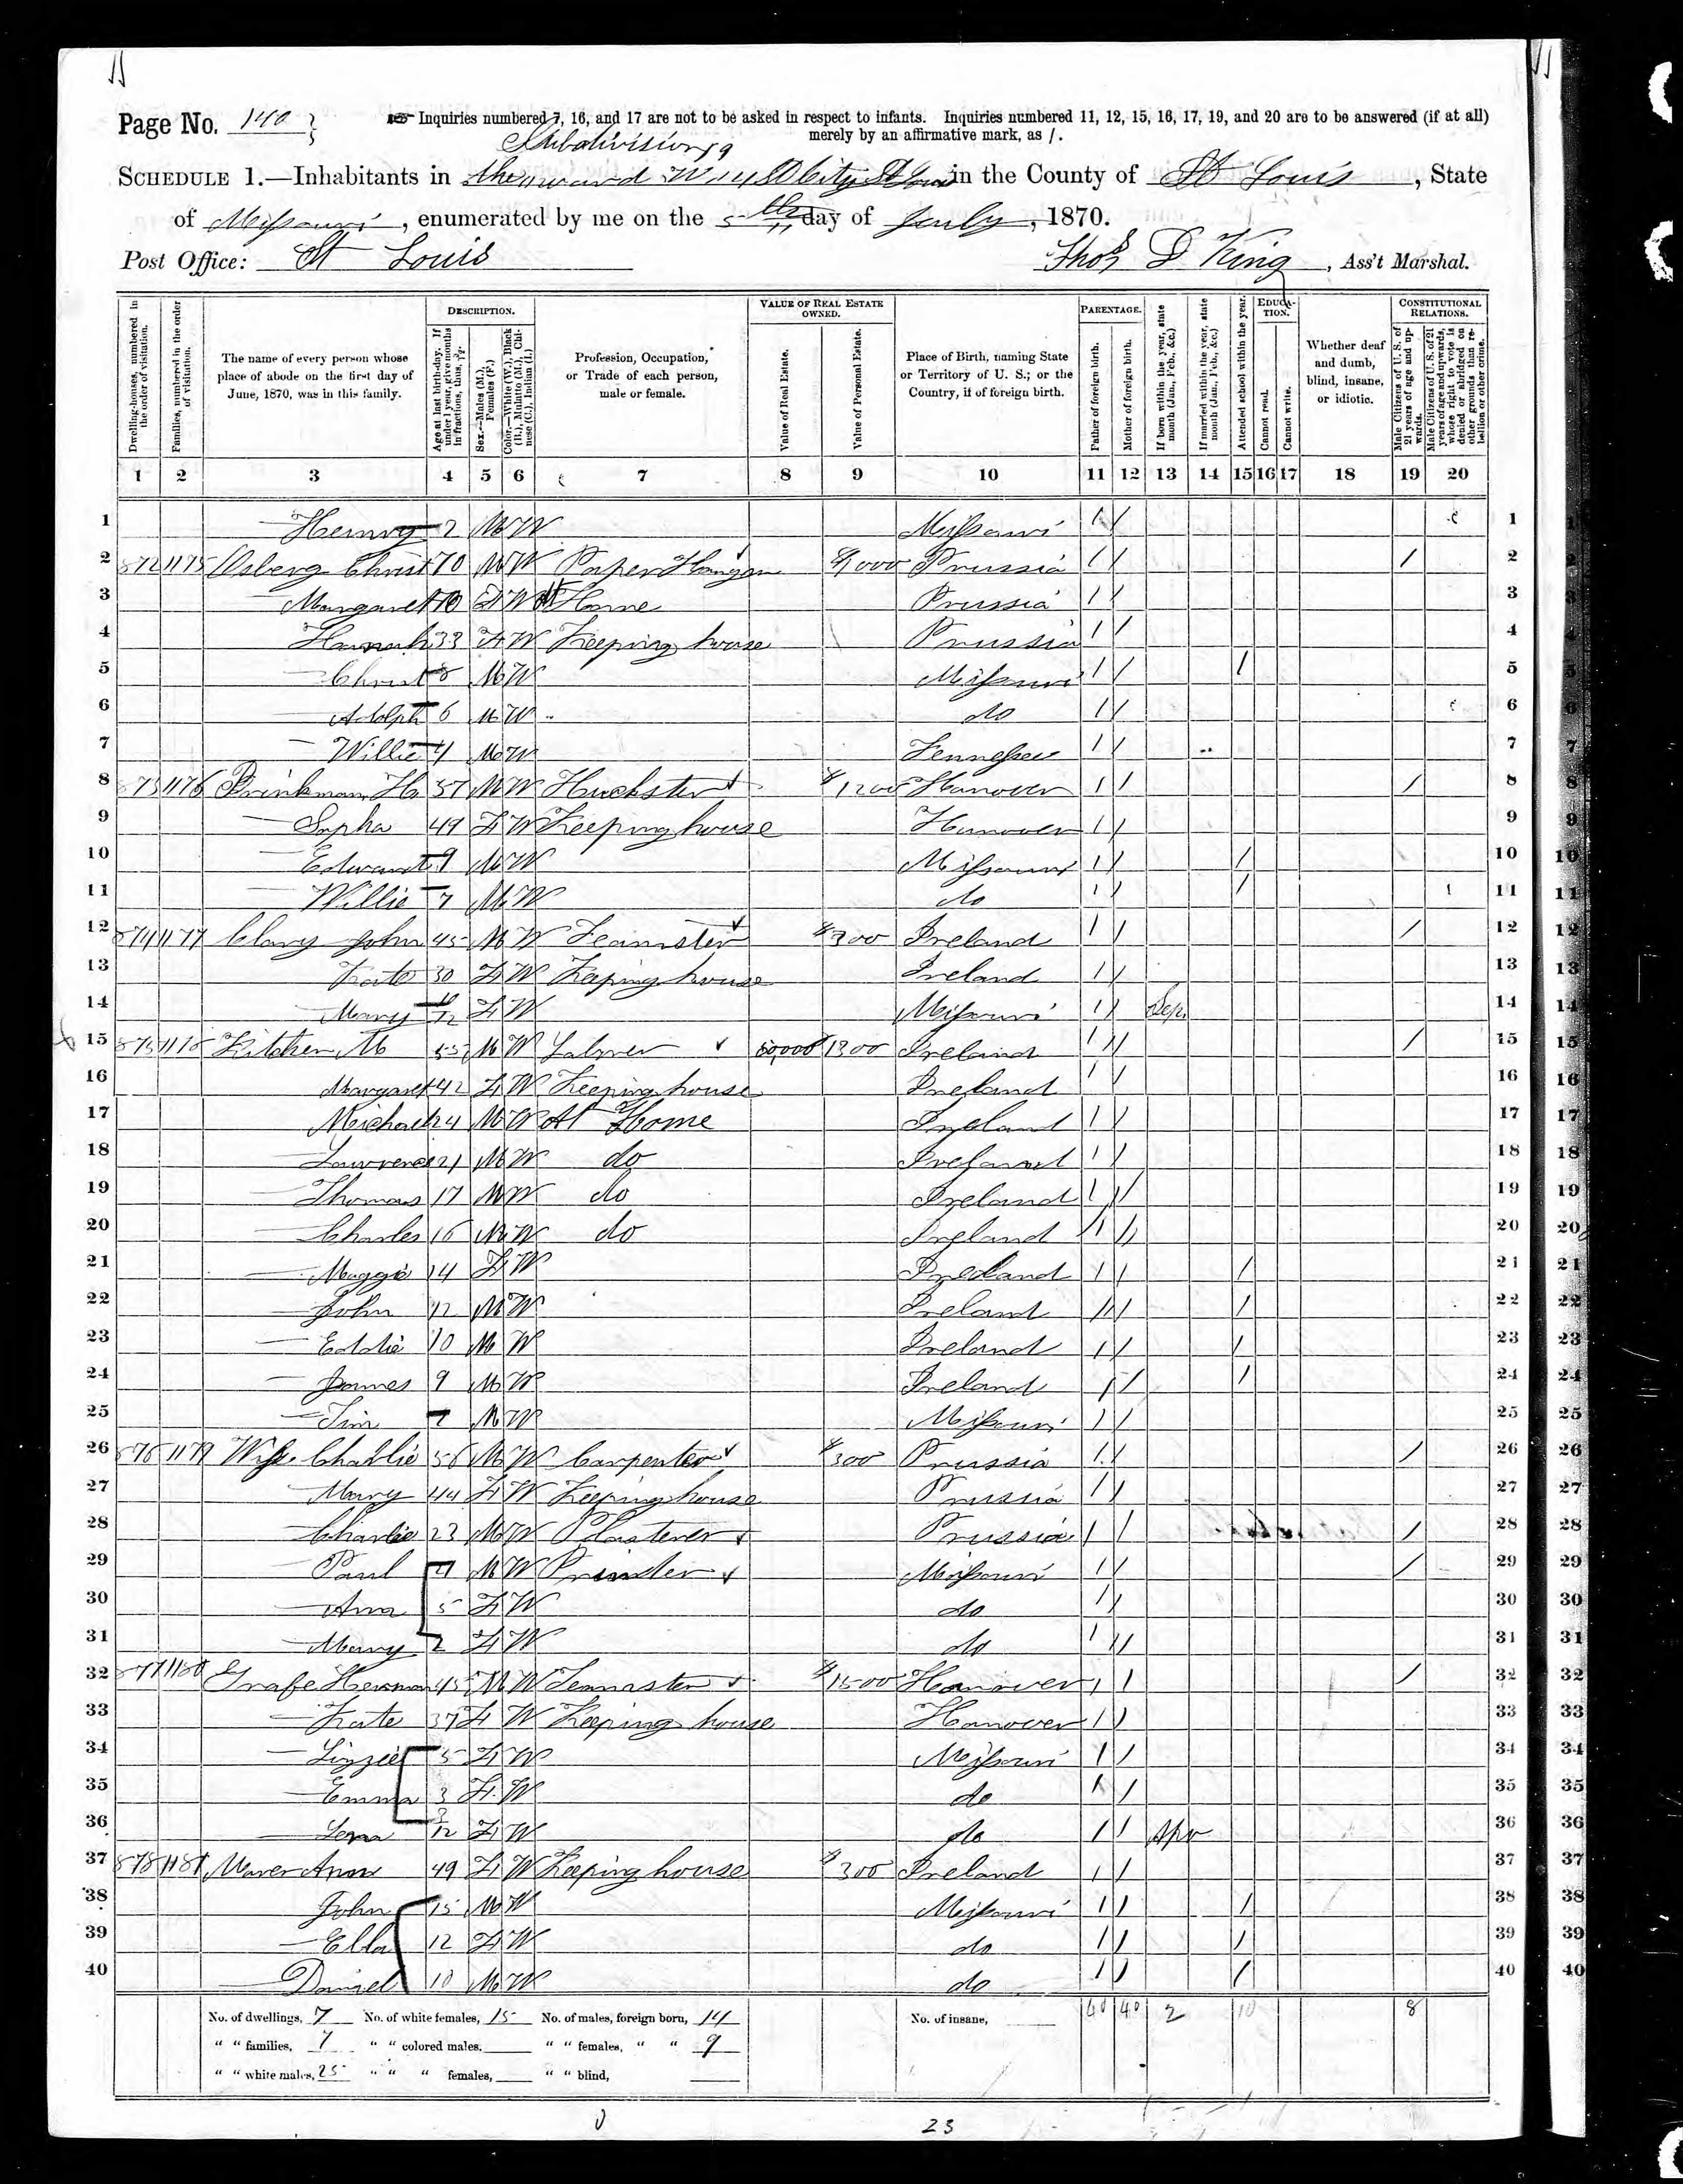 Page No. 140
Inquiries numbered 7, 16, and 17 are not to be asked in respect to infants. Inquiries numbered 11, 12, 15, 16, 17, 19, and 20 are to be answered (if at all)
merely by an affirmative mark, as /.
Subdivision 9
SCHEDULE 1.—Inhabitants in the 11 ward City St Louis in the County of St Louis, State
of Missouri, enumerated by me on the 5th day of July, 1870.
Post Office: St Louis
Thos D King, Ass't Marshal.
Dwelling-houses, numbered in the order of visitation.
Families, numbered in the order of visitation.
The name of every person whose place of abode on the first day of June, 1870, was in this family.
DESCRIPTION.
Age at last birth-day. If under 1 year, give months in fractions, thus, 3/12
Sex.—Males (M.), Females (F.)
Color.—White (W.), Black (B.), Mulatto (M.), Chinese (C.), Indian (I.)
Profession, Occupation, or Trade of each person, male or female.
VALUE OF REAL ESTATE OWNED.
Value of Real Estate.
Value of Personal Estate.
Place of Birth, naming State or Territory of U. S.; or the Country, if of foreign birth.
PARENTAGE.
Father of foreign birth.
Mother of foreign birth.
If born within the year, state month (Jan., Feb., &c.)
If married within the year, state month (Jan., Feb., &c.)
Attended school within the year.
EDUCATION.
Cannot read.
Cannot write.
Whether deaf and dumb, blind, insane, or idiotic.
CONSTITUTIONAL RELATIONS.
Male Citizens of U. S. of 21 years of age and upwards.
Male Citizens of U. S. of 21 years of age and upwards, whose right to vote is denied or abridged on other grounds than rebellion or other crime.
1 2 3 4 5 6 7 8 9 10 11 12 13 14 15 16 17 18 19 20
1 Henry 2 M W Missouri / / 1
2 872 1175 Osberg Christ 70 M W Paper Hanger $1000 Prussia / / / 2
3 Margaret 70 F W At Home Prussia / / 3
4 Hannah 33 F W Keeping house Prussia / / 4
5 Christ 8 M W Missouri / / / 5
6 Adolph 6 M W do / / 6
7 Willie 4 M W Tennessee / / 7
8 873 1176 Brinkman H 57 M W Huckster $1200 Hanover / / / 8
9 Sopha 49 F W Keeping house Hanover / / 9
10 Edward 9 M W Missouri / / / 10
11 Willie 7 M W do / / / 11
12 874 1177 Clary John 45 M W Teamster $300 Ireland / / / 12
13 Kate 30 F W Keeping house Ireland / / 13
14 Mary F W Missouri / / Sep. 14
15 875 1178 Kitchen M 55 M W Labrer 1300 Ireland / / / 15
16 Margaret 42 F W Keeping house Ireland / / 16
17 Michael 24 M W At Home Ireland / / 17
18 Lawrence 21 M W do Ireland / / 18
19 Thomas 17 M W do Ireland / / 19
20 Charles 16 M W do Ireland / / 20
21 Maggie 14 F W Ireland / / / 21
22 John 12 M W Ireland / / / 22
23 Eddie 10 M W Ireland / / / 23
24 James 9 M W Ireland / / / 24
25 Tim 7 M W Missouri / / 25
26 876 1179 Charlie 56 M W Carpenter $300 Prussia / / / 26
27 Mary 44 F W Keeping house Prussia / / 27
28 Charlie 23 M W Plasterer Prussia / / / 28
29 Paul 21 M W Printer Missouri / / / 29
30 Ann 5 F W do / / 30
31 Mary 2 F W do / / 31
32 877 1180 Grafe Herman 45 M W Teamster $1500 Hanover / / / 32
33 Kate 37 F W Keeping house Hanover / / 33
34 Lizzie 5 F W Missouri / / 34
35 Emma 3 F W do / / 35
36 Lena 3/12 F W do / / Apr 36
37 878 1181 Maver Ann 49 F W Keeping house $300 Ireland / / 37
38 John 15 M W Missouri / / / 38
39 Ella 12 F W do / / / 39
40 Daniel 10 M W do / / / 40
No. of dwellings, 7 No. of white females, 15 No. of males, foreign born, 14 No. of insane, 40 40 2 10 8
" " families, 7 " " colored males, " " females, " " 9
" " white males, 25 " " " females, " " blind,
23